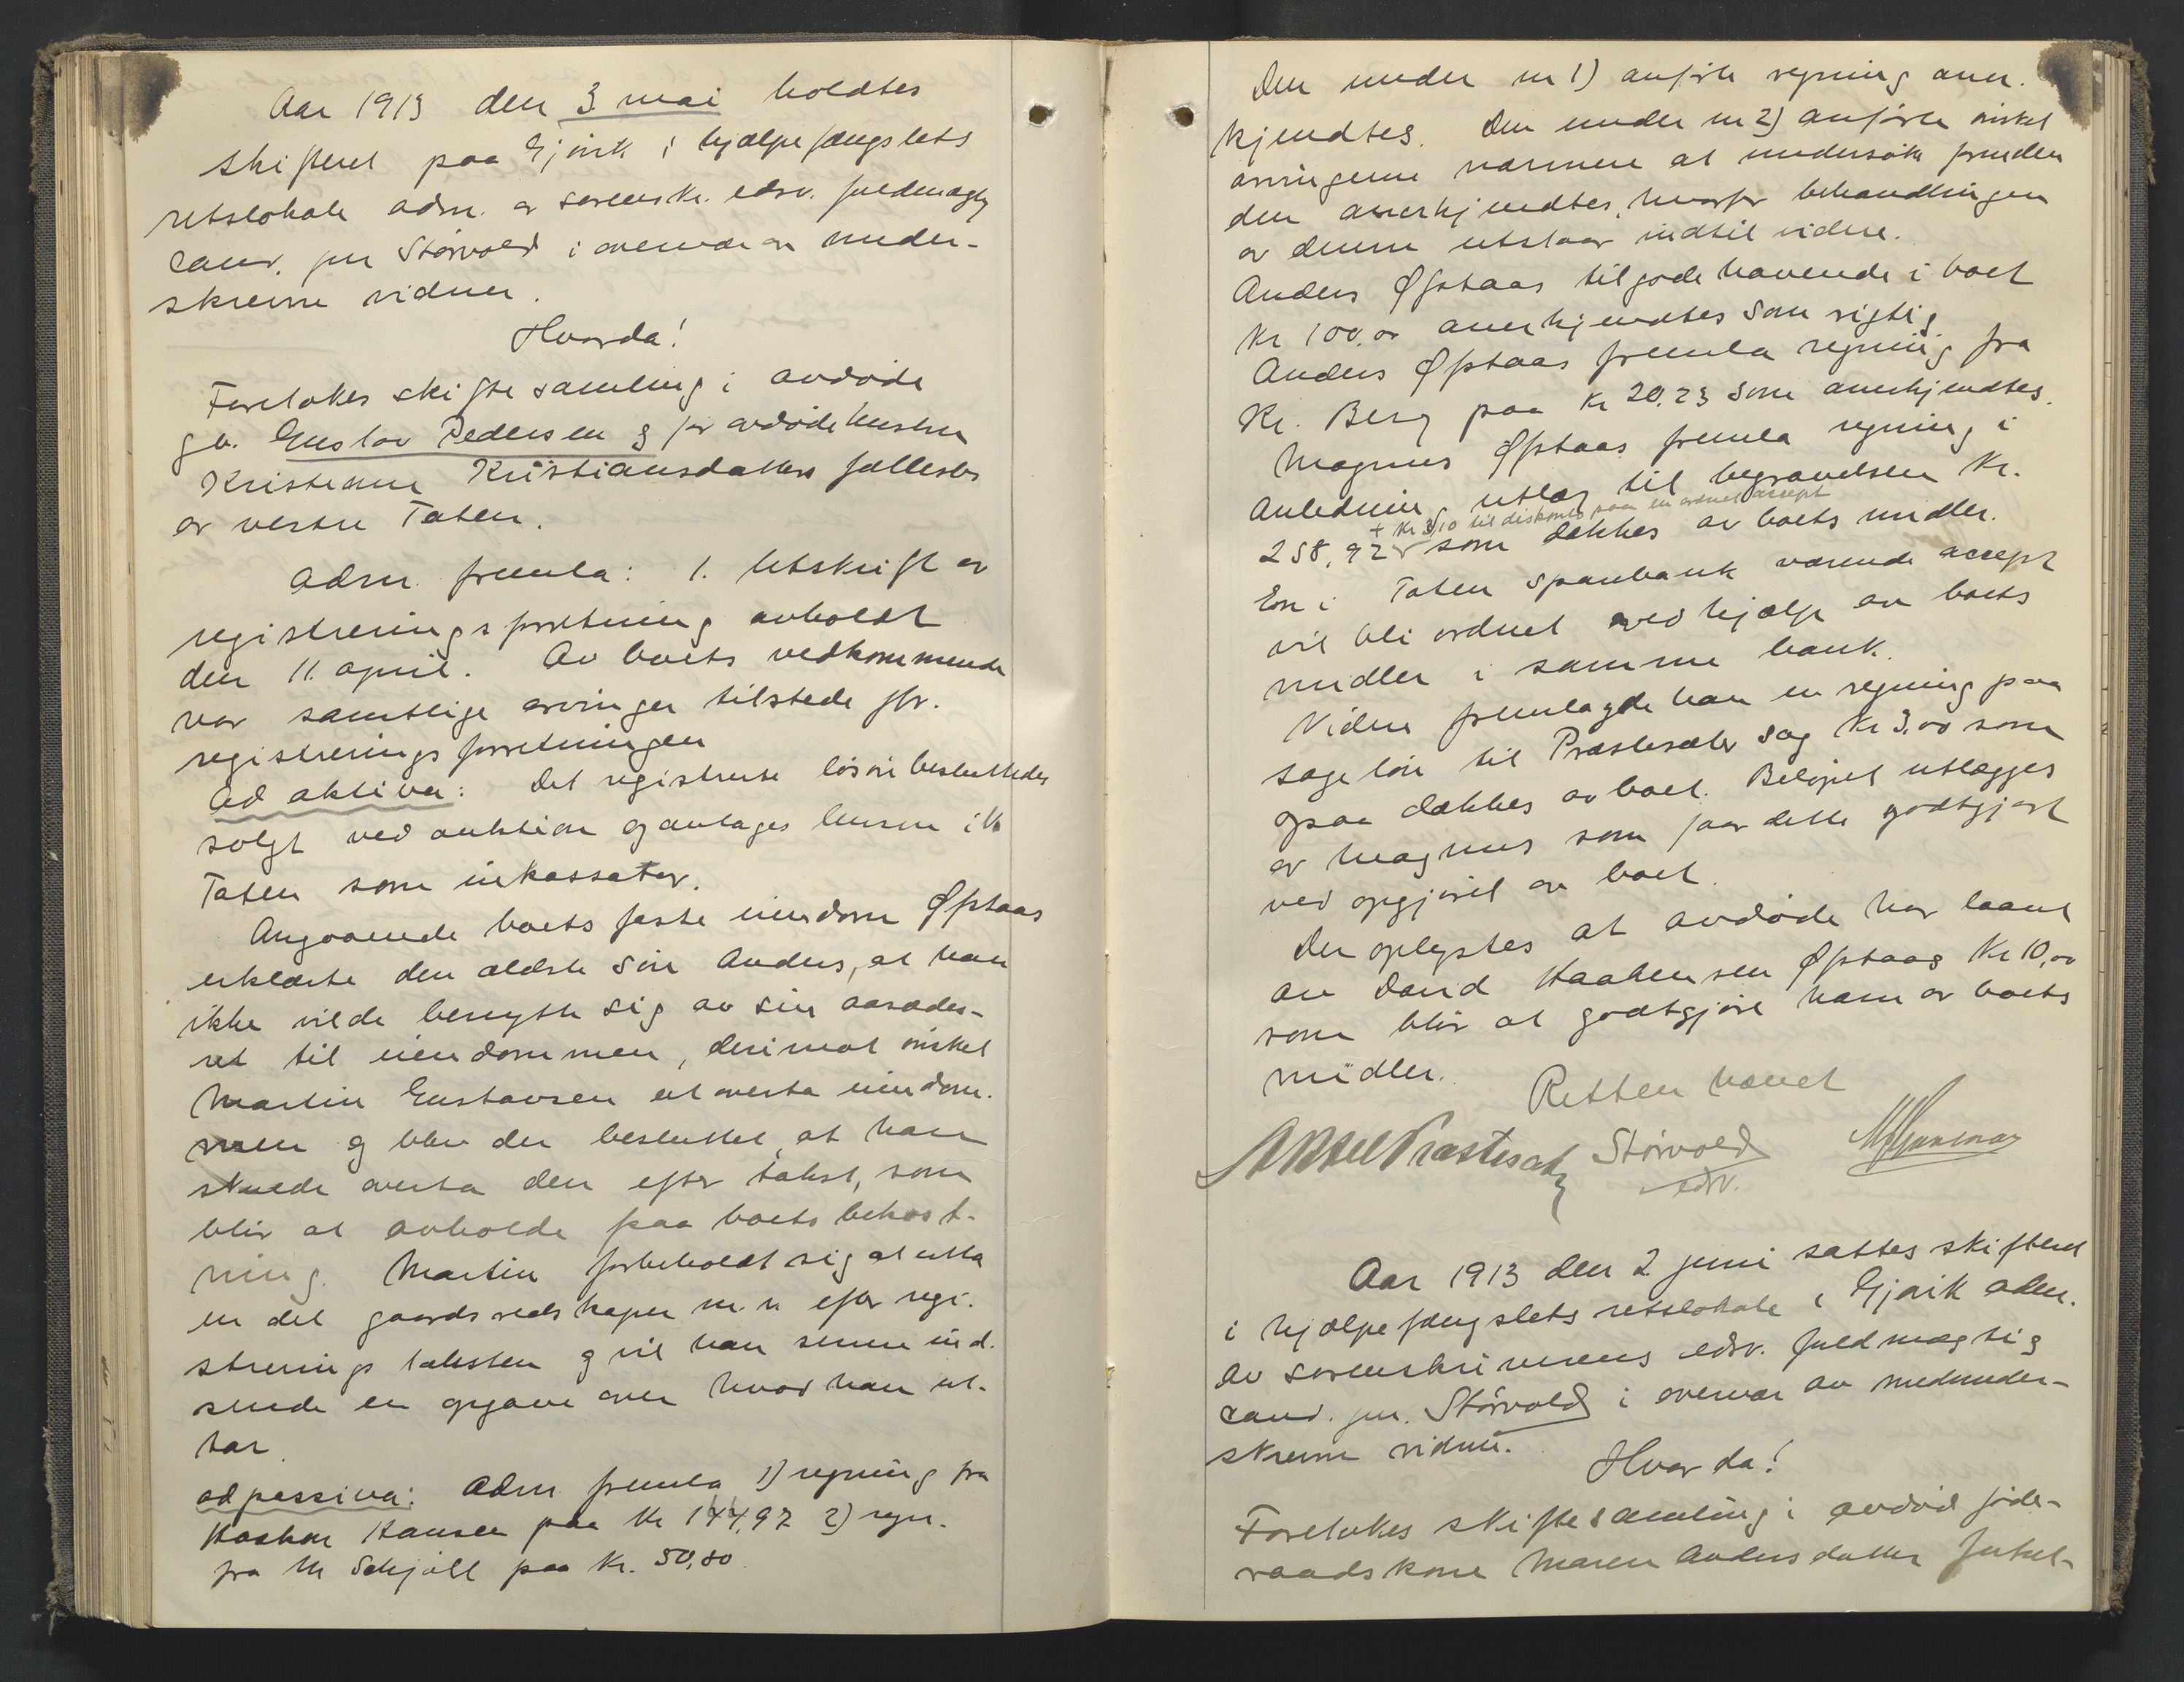 Aar 1913 den 3 mai holdtes
skifteret paa Gjøvik i hjælpefængslets
retslokale adm. av sorenskr. edsv. fuldmægtig
cand. jur Størvold i overvær av under-
skrevne vidner.
Hvorda!
Foretokes skiftesamling i avdøde
gb. Gustav Pedersen og før avdøde hustru
Kristenne Kristiansdatters fællesbo
av vestre Toten.
Adm. fremla: 1. Utskrift av
registreringsforretning avholdt
den 11. april. Av boets vedkommende
var samtlige arvinger tilstede jfr.
registreringsforretningen
Ad aktiva: Det registrerte løsøre besluttedes
solgt ved auktion og antages lensm. i V.
Toten som inkassator.
Angaaende boets faste eiendom Øfstaas
erklærte den ældste søn Anders, at han
ikke vilde benytte sig av sin aasædes-
ret til eiendommen, derimot ønsket
Martin Gustavsen at overta eiendom-
men og blev det besluttet, at han
skulde overta den efter takst, som
blir at avholde paa boets bekost-
ning. Martin forbeholdt sig at utta
en del gaardsredskaper m.v. efter regi-
streringstaksten og vil han senere ind-
sende en opgave over hvad han ut-
tar.
ad passiva: Adm fremla 1) regning fra
Haakon Hansen paa Kr 144,97 2) regn.
fra M Schjøll paa Kr. 50,80
Den under nr 1) anførte regning aner-
kjendtes. Den under nr 2) anførte ønsket
arvingerne nærmere at undersøke forinden
den anerkjendtes, hvorfor behandlingen
av denne utstaar indtil videre.
Anders Øfstaas tilgodehavende i boet
Kr 100,00 anerkjendtes som rigtig.
Anders Øfstaas fremla regning fra
Kr. Berg paa Kr 20.23 som anerkjendtes.
Magnus Øfstaas fremla regning i
anledning utlæg til begravelsen Kr.
+ Kr 3,10 til diskonto paa en ordnet accept
258,92 som dækkes av boets midler.
En i Toten Sparebank værende accept
vil bli ordnet ved hjælp av boets
midler i samme bank.
Videre fremlagde han en regning paa
sageløn til Præstesæter sag Kr 3.00 som
ogsaa dækkes av boet. Beløpet utlægges
av Magnus som faar dette godtgjort
ved opgjøret av boet.
Der oplystes at avdøde har laant
av David Haakensen Øfstaas Kr 10,00
som blir at godtgjøre ham av boets
midler.
Retten hævet
Størvold
edsv.
Aar 1913 den 2 juni sattes skifteret
i hjælpefængslets retslokale i Gjøvik adm.
av sorenskriverens edsv. fuldmægtig
cand. jur. Størvold i overvær av medunder-
skrevne vidner.
Hvorda!
Foretokes skiftesamling i avdød føde-
raadskone Maren Andersdatter